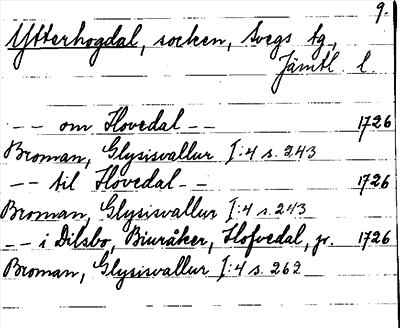 9.
Ytterhogdal, socken, Svegs tg.,
Jämtl. l.
-- om Hovedal -- 1726
Broman, Glysisvallur I:4 s. 243
-- til Hovedal -- 1726
Broman, Glysisvallur I:4 s. 243
-- i Dilsbo, Biuråker, Hofvedal, pr. 1726
Broman, Glysisvallur I:4 s. 262